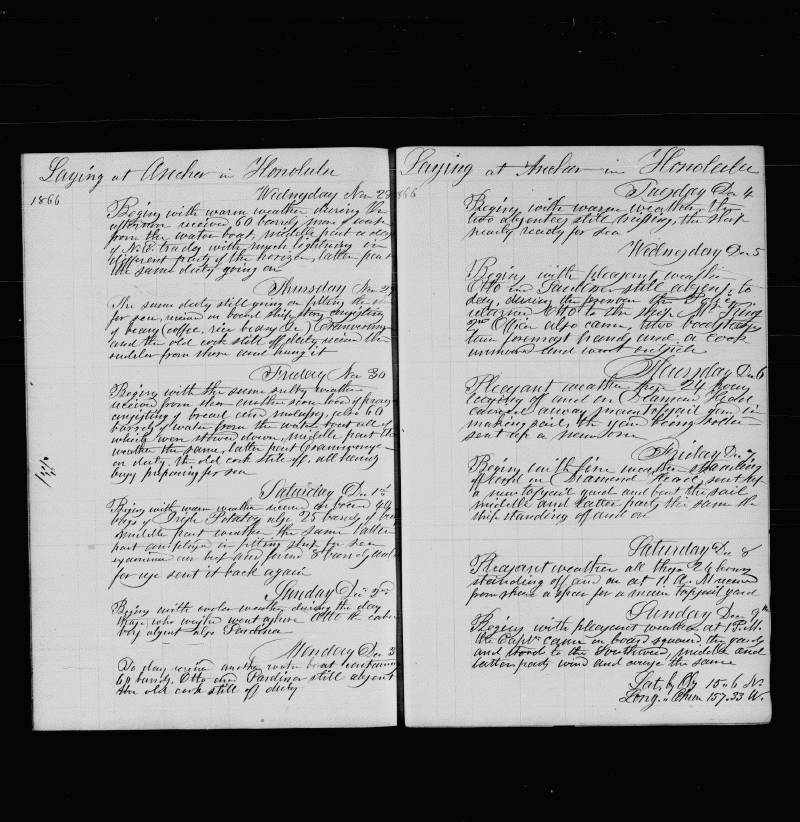 Laying at Anchor in Honolulu
1866
Wednesday Nov 28
Begins with warm weather during the
afternoon received 60 barrels more of water
from the water boat, middle part a
of N.E. trades with much lightning in
different parts of the horizon, latter part
the same duty going on
Thursday Nov 29
The same duty still going on fitting the
for sea, received on board ship stores consisting
of beans, coffee, rice
and the old cook still off duty received the
rudder from shore and hung it
Friday Nov 30
Begins with the same sultry weather
received from shore another scow load of
consisting of bread and molasses, also 60
barrels of water from the water boat all of
which were stowed down, middle part the
weather the same, latter part
on duty, the old cook still off, all hands
busy preparing for sea
Saturday Dec 1st
Begins with warm weather received on board 44
bags of Irish Potatoes also 25 barrels of
middle part weather the same latter
part employed in fitting ship for sea
examined our beef and found 8 barrels
for use sent it back again
Sunday Dec 2nd
Begins with cooler weather during the day
those who wished went ashore Otto the
boy absent also Gardiner
Monday Dec 3
To day received another water boat containing
60 barrels, Otto and Gardiner still absent
the old cook still off duty
Laying at Anchor in Honolulu
1866
Tuesday Dec 4
Begins with warm weather, the
two absentees still missing, the ship
nearly ready for sea
Wednesday Dec 5
Begins with pleasant weather
Otto and Gardiner still absent, to
day, during the forenoon the
returned Otto to the ship Mr King
2nd Officer also came, two boatsteerers
foremast hands and a cook
and went outside
Thursday Dec 6
Pleasant weather these 24 hours
laying off and on Diamond Head
carried away main topsail yard in
making sail, the yard being rotten
sent up a new one
Friday Dec 7
Begins with fine weather standing
off and on Diamond Head, sent up
a new topsail yard and bent the sail
middle and latter parts the same the
ship standing off and on
Saturday Dec 8
Pleasant weather all these 24 hours
standing off and on at 11 A.M received
from shore a spar for a main topsail yard
Sunday Dec 9th
Begins with pleasant weather at 1 P.M.
the Capt. came on board squared the yards
and stood to the Southward, middle and
latter parts wind and course the same
Lat. by Obs 15..6 N.
Long. " Chron 157.33 W.